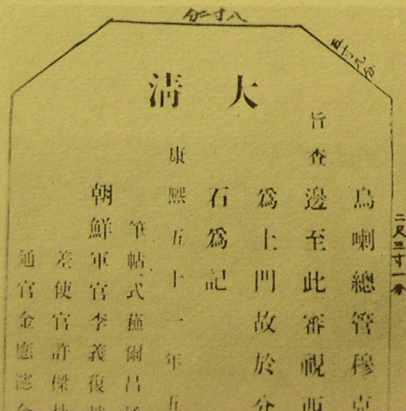 八寸二分
二尺三寸一分
大淸
烏喇總管穆克
旨查邊至此審視西
爲土門故於分
石爲記
康熙五十一年五
筆帖式蘇爾昌
朝鮮軍官李義復
差使官許樑
通官金應瀗